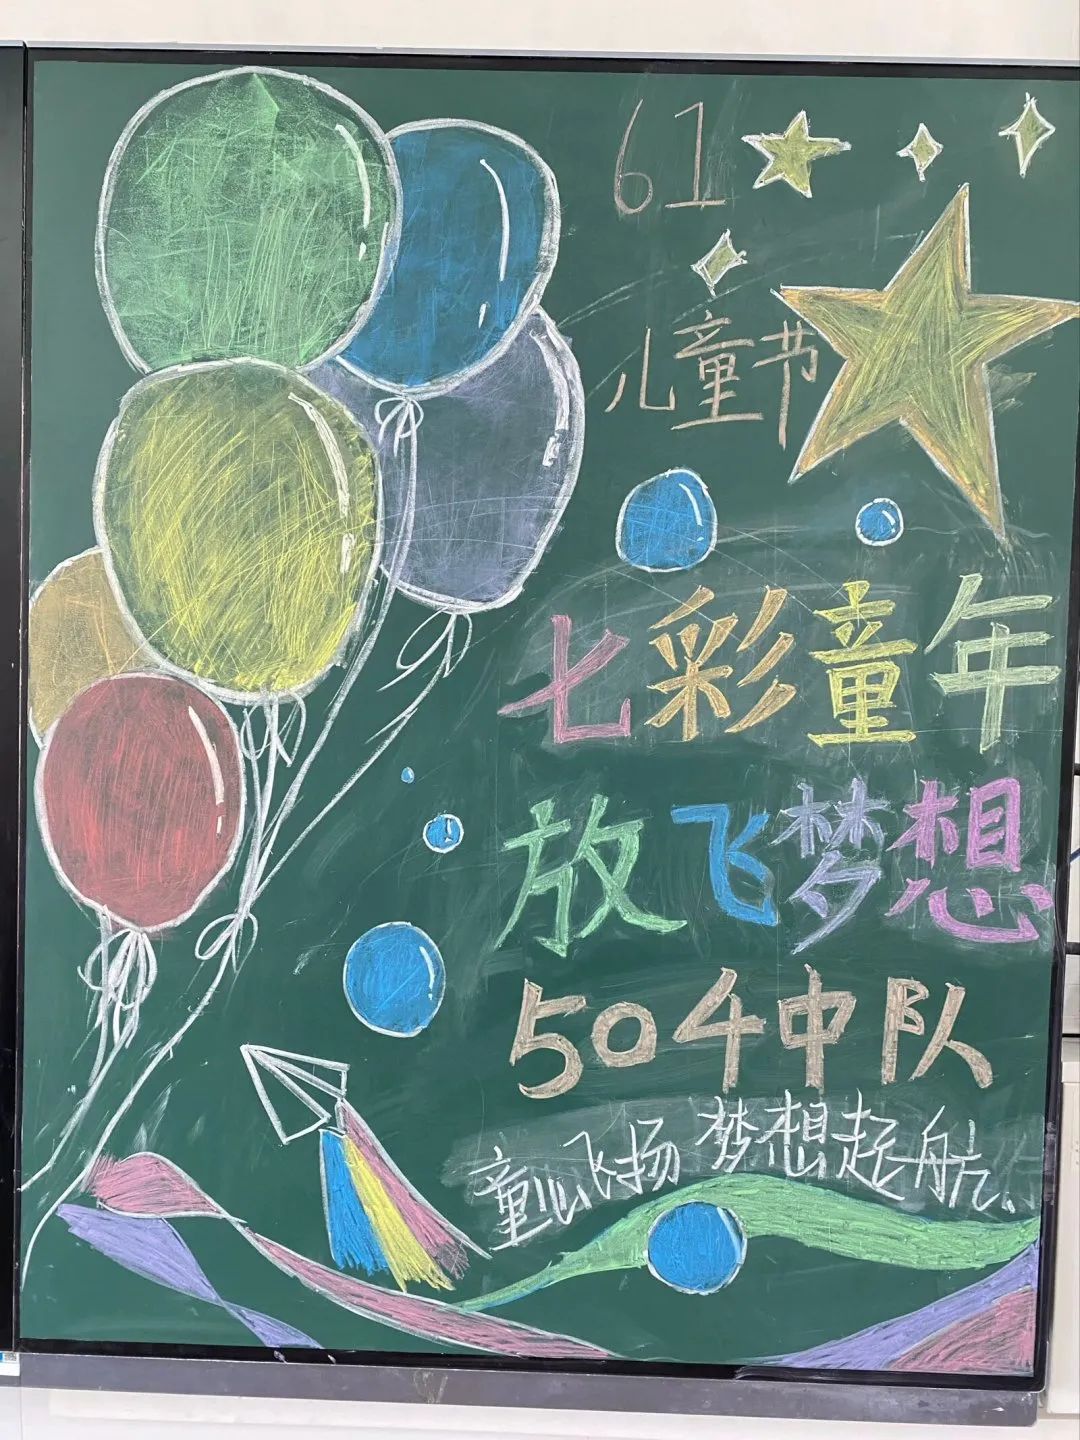 61
儿童节
七彩童年
放飞梦想
504中队
童心飞扬 梦想起航.